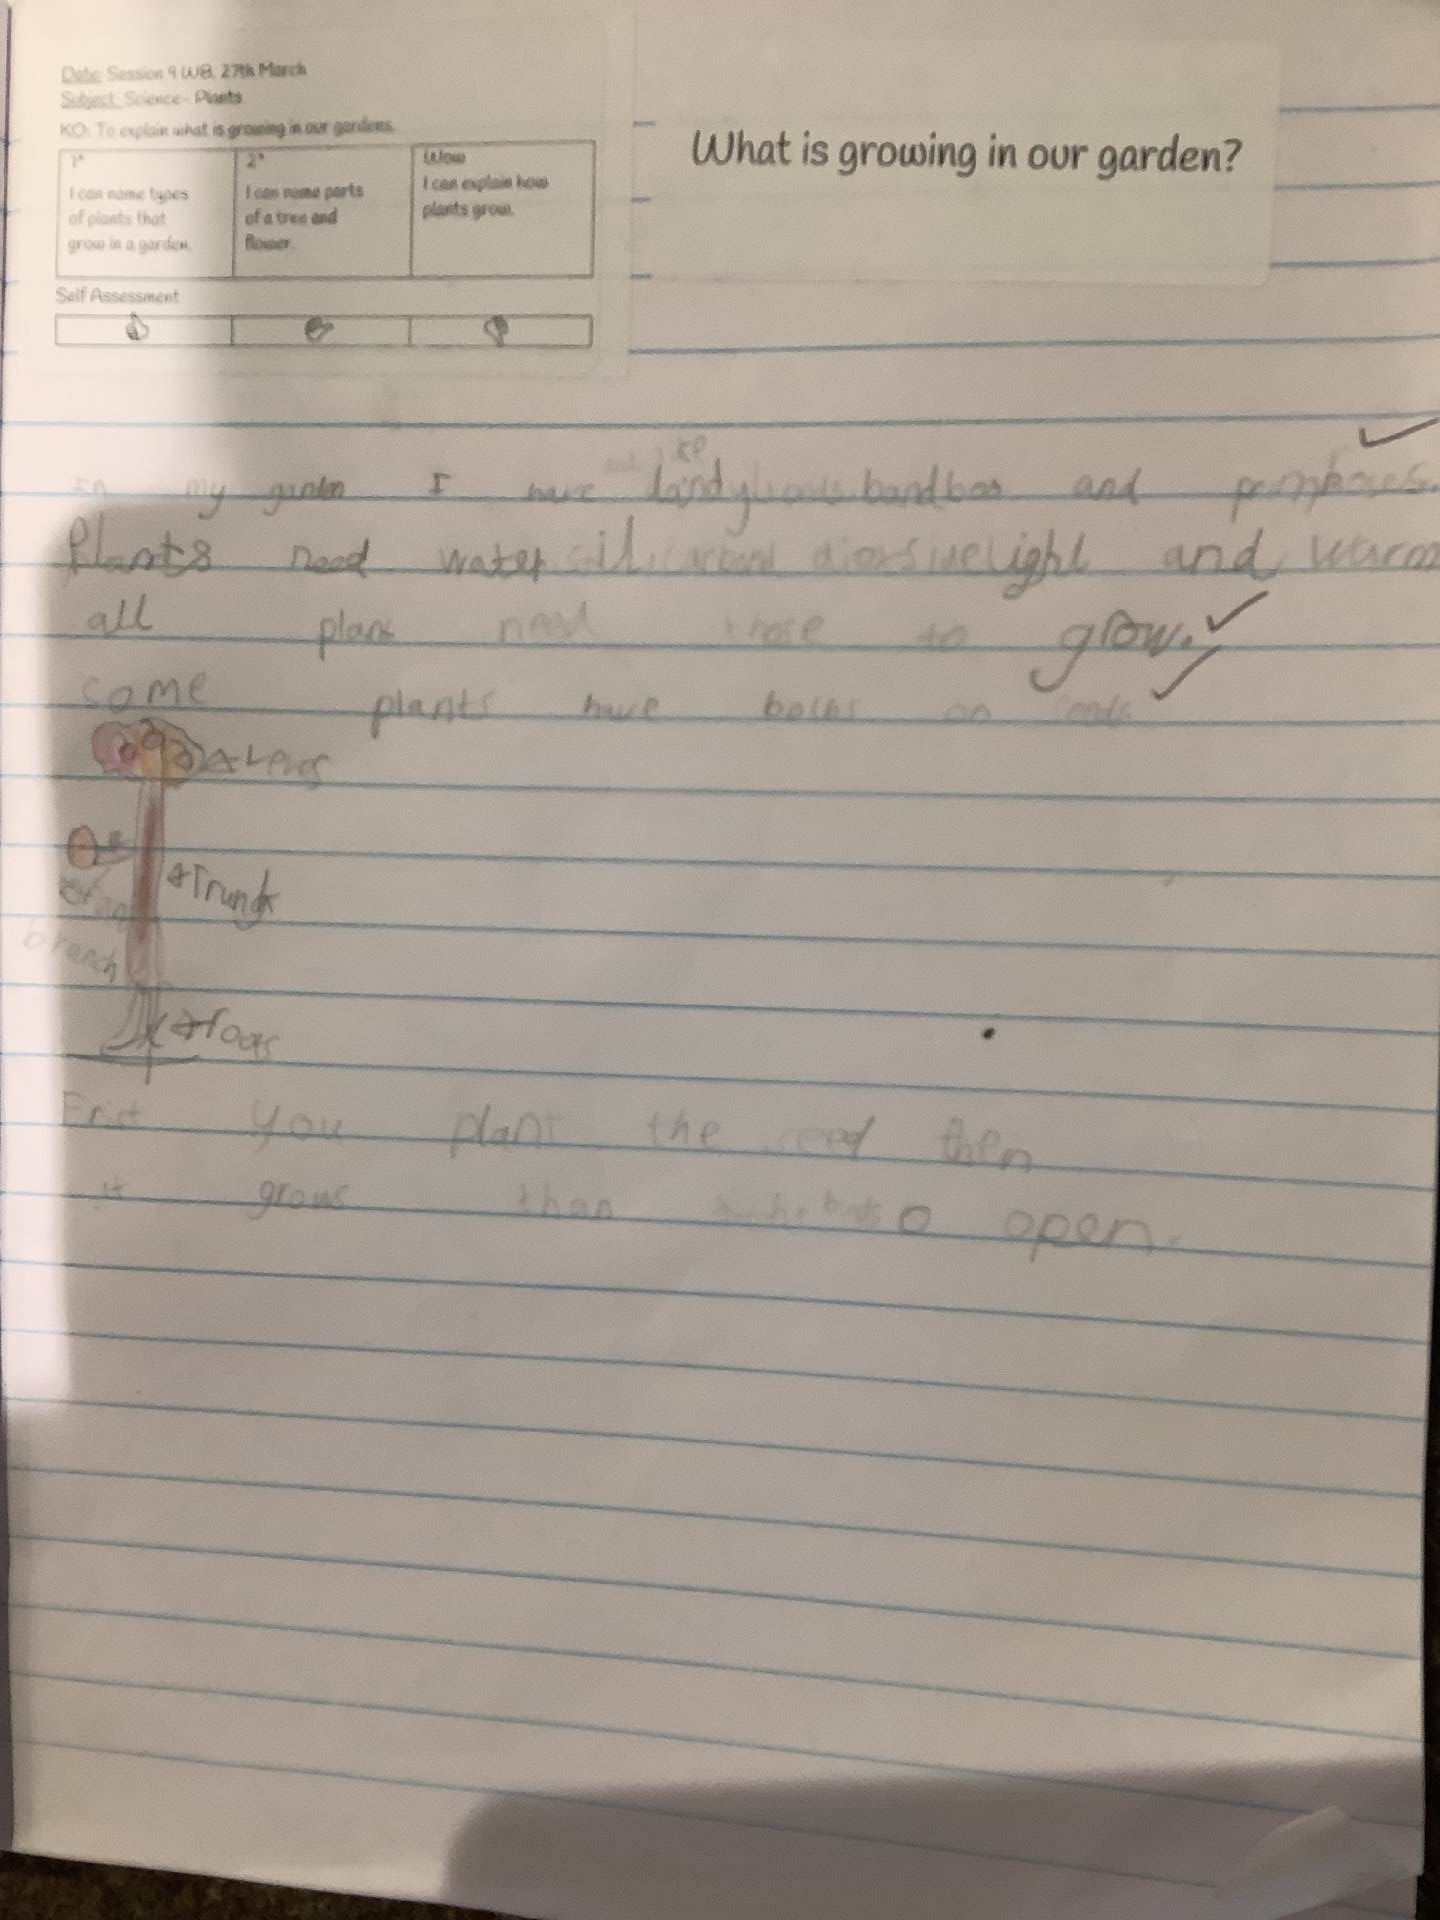 Date: Session 9 WB. 27th March
Subject: Science - Plants
KO: To explain what is growing in our gardens.
1*
I can name types
of plants that
grow in a garden.
2*
I can name parts
of a tree and
flower.
Wow
I can explain how
plants grow.
Self Assessment
What is growing in our garden?
In my garden I have and
Plants need water light and warm
all plans need those to grow.
some plants have
Leves
Trunk
branch
roots
Frist you plant the seed then
it grows than open.